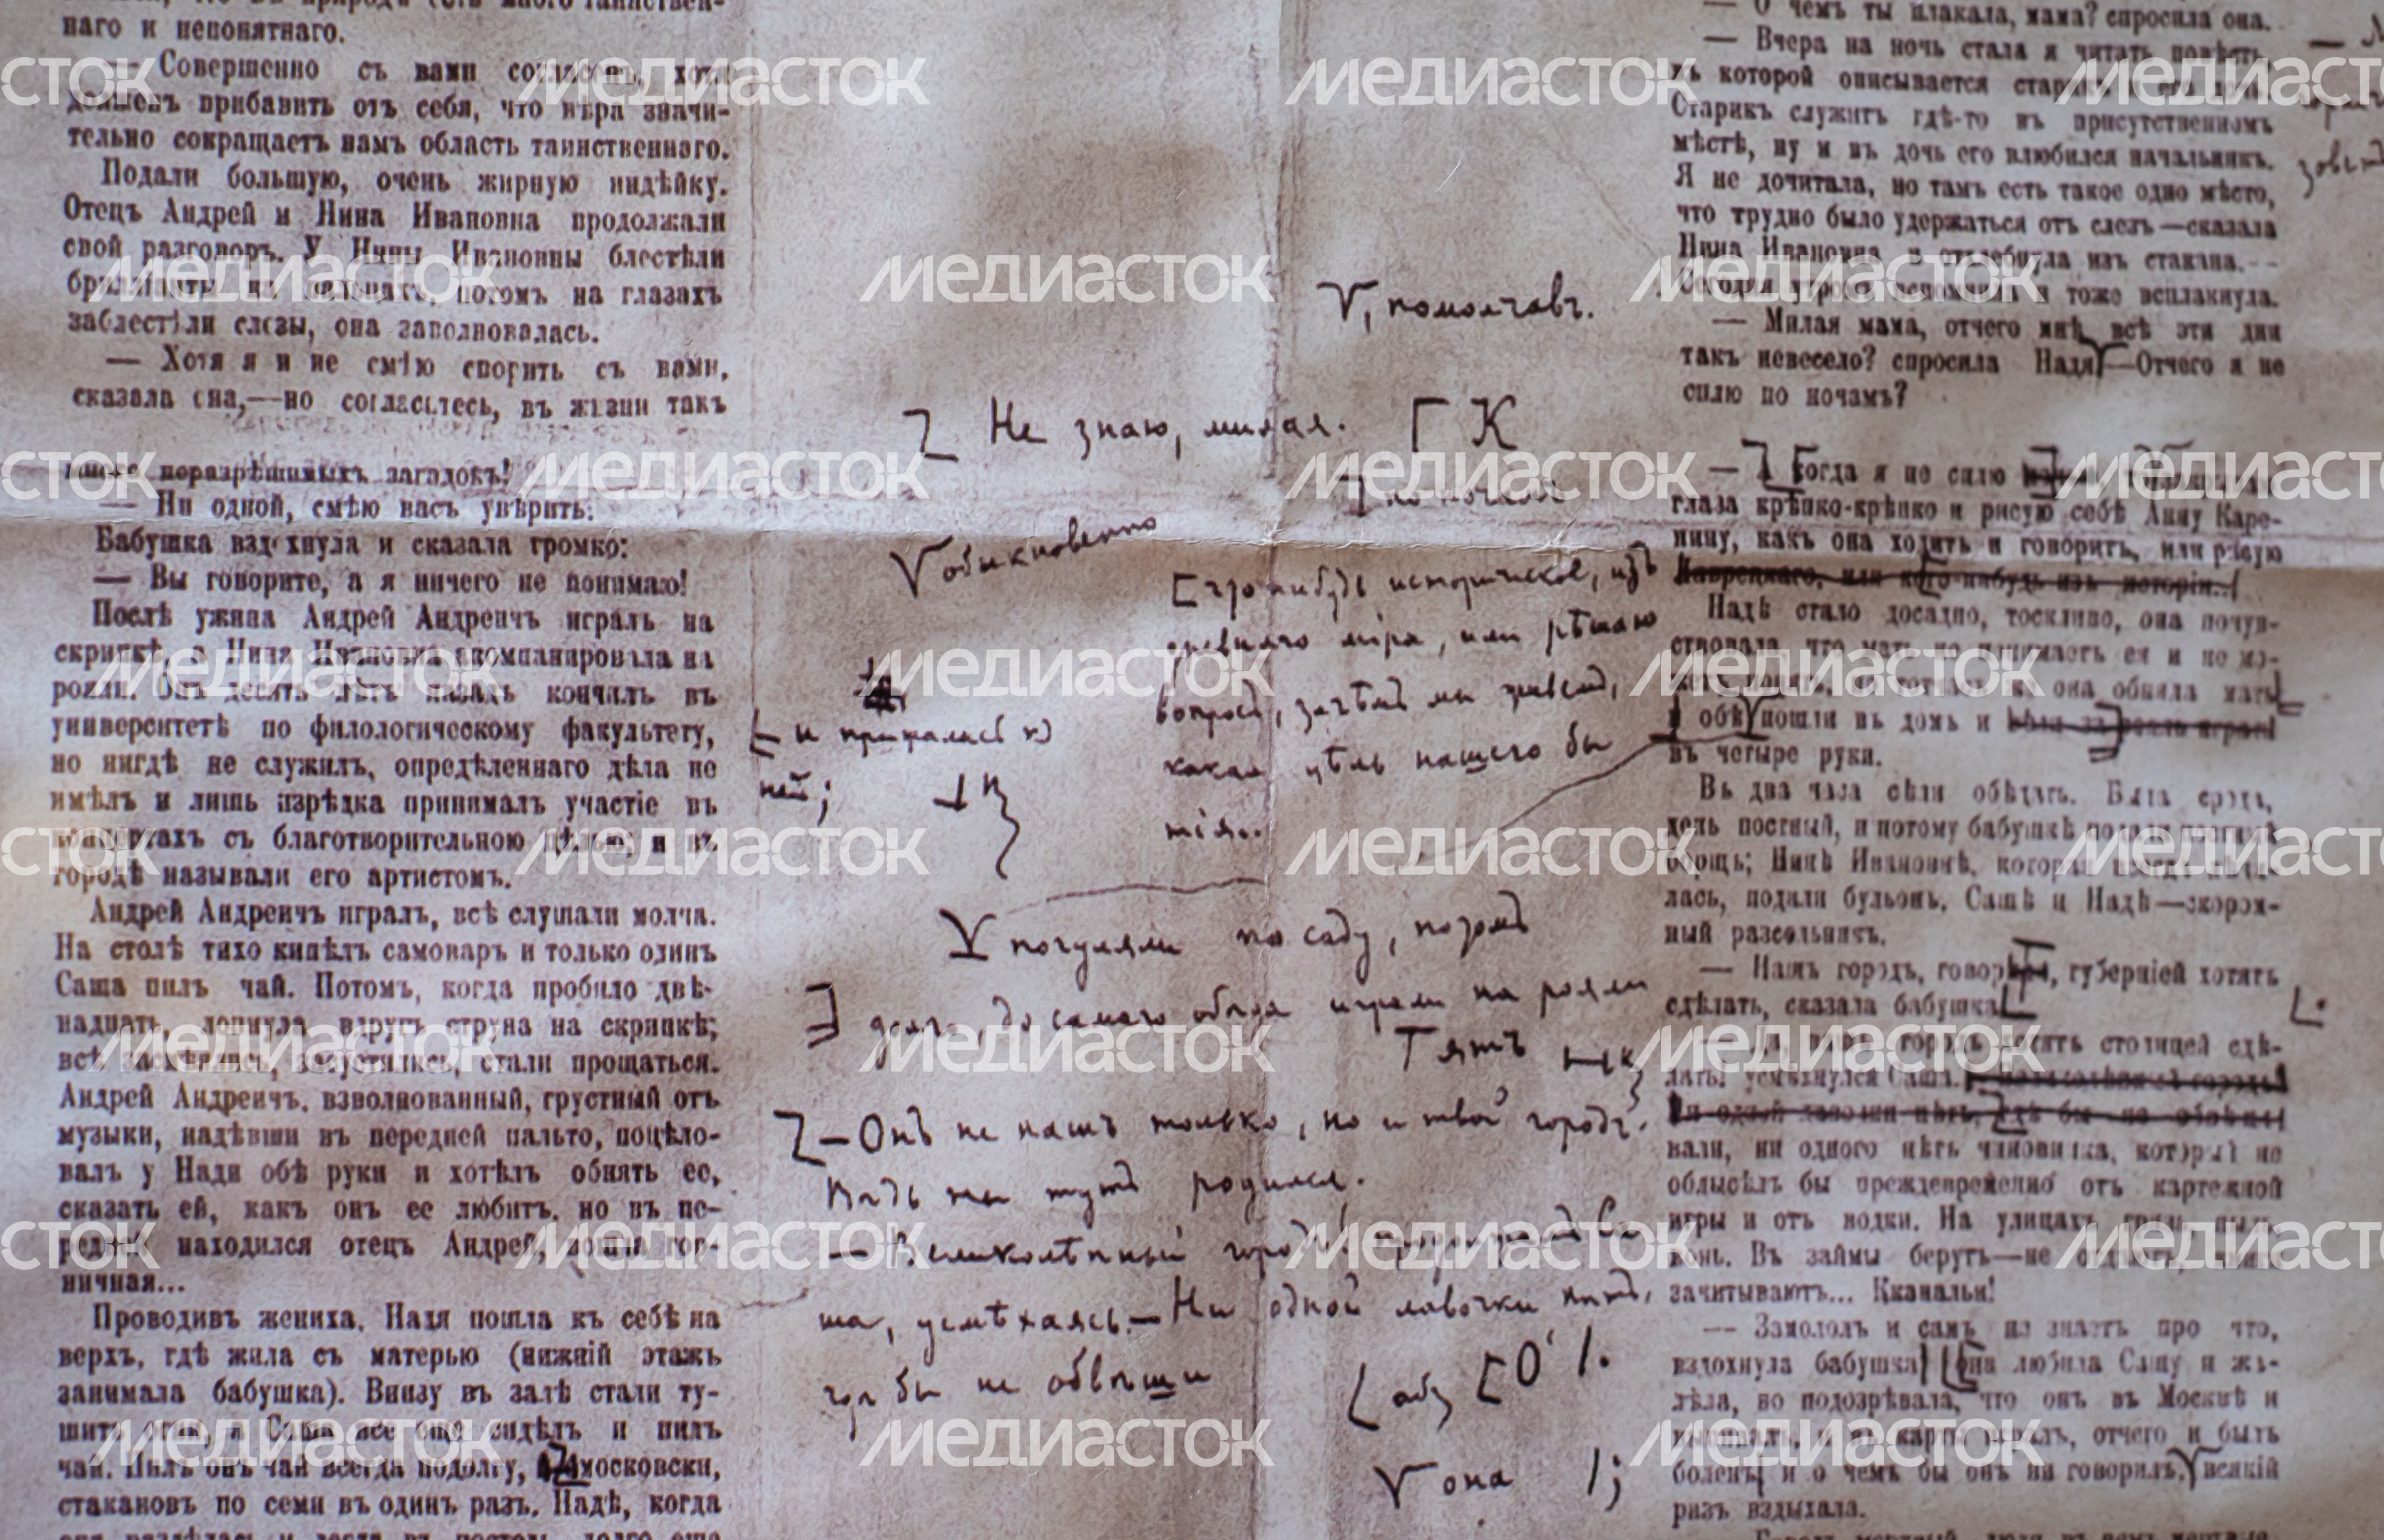 наго и непонятнаго.
— Совершенно съ вами согласенъ, хотя
долженъ прибавить отъ себя, что вѣра значи-
тельно сокращаетъ намъ область таинственнаго.
Подали большую, очень жирную индѣйку.
Отецъ Андрей и Нина Ивановна продолжали
свой разговоръ. У Нины Ивановны блестѣли
брилліанты на пальцахъ, потомъ на глазахъ
заблестѣли слезы, она заволновалась.
— Хотя я и не смѣю спорить съ вами,
сказала она,—но согласитесь, въ жизни такъ
много неразрѣшимыхъ загадокъ!
— Ни одной, смѣю васъ увѣрить.
Бабушка вздохнула и сказала громко:
— Вы говорите, а я ничего не понимаю!
Послѣ ужина Андрей Андреичъ игралъ на
скрипкѣ, а Нина Ивановна акомпанировала на
рояли. Онъ десять лѣтъ назадъ кончилъ въ
университетѣ по филологическому факультету,
но нигдѣ не служилъ, опредѣленнаго дѣла не
имѣлъ и лишь изрѣдка принималъ участіе въ
концертахъ съ благотворительною цѣлью; и въ
городѣ называли его артистомъ.
Андрей Андреичъ игралъ, всѣ слушали молча.
На столѣ тихо кипѣлъ самоваръ и только одинъ
Саша пилъ чай. Потомъ, когда пробило двѣ-
надцать, лопнула вдругъ струна на скрипкѣ;
всѣ засмѣялись, засуетились, стали прощаться.
Андрей Андреичъ, взволнованный, грустный отъ
музыки, надѣвши въ передней пальто, поцѣло-
валъ у Нади обѣ руки и хотѣлъ обнять ее,
сказать ей, какъ онъ ее любитъ, но въ пе-
редней находился отецъ Андрей, вошла гор-
ничная...
Проводивъ жениха, Надя пошла къ себѣ на
верхъ, гдѣ жила съ матерью (нижній этажъ
занимала бабушка). Внизу въ залѣ стали ту-
шить огни, а Саша все еще сидѣлъ и пилъ
чай. Пилъ онъ чай всегда подолгу, московски,
стакановъ по семи въ одинъ разъ. Надѣ, когда
, помолчавъ.
Не знаю, милая. К
по ночамъ
обыкновенно
что-нибудь историческое, изъ
древняго міра, или рѣшаю
вопросъ, зачѣмъ мы живемъ,
какая цѣль нашего бы
тія.
и прижалась къ
ней;
погуляли по саду, потомъ
долго до самаго обѣда играли на рояли
тятъ
— Онъ не нашъ только, но и твой городъ.
Вѣдь ты тутъ родился.
— Великолѣпный городъ! продолжалъ Са
ша, усмѣхаясь.— Ни одной лавочки нѣтъ,
гдѣ бы не обвѣши
абз О
она
— О чемъ ты плакала, мама? спросила она.
— Вчера на ночь стала я читать повѣсть,
въ которой описывается старикъ и его дочь.
Старикъ служитъ гдѣ-то въ присутственномъ
мѣстѣ, ну и въ дочь его влюбился начальникъ.
Я не дочитала, но тамъ есть такое одно мѣсто,
что трудно было удержаться отъ слезъ—сказала
Нина Ивановна и отхлебнула изъ стакана.—
Сегодня утромъ вспомнила и тоже всплакнула.
— Милая мама, отчего мнѣ всѣ эти дни
такъ невесело? спросила Надя—Отчего я не
сплю по ночамъ?
— А когда я не сплю
глаза крѣпко-крѣпко и рисую себѣ Анну Каре-
нину, какъ она ходитъ и говоритъ, или рисую
Лаврецкаго, или кого-нибудь изъ исторіи...
Надѣ стало досадно, тоскливо, она почув-
ствовала, что мать не понимаетъ ея и не мо-
жетъ понять, она обняла мать
и обѣ пошли въ домъ и играть
въ четыре руки.
Въ два часа сѣли обѣдать. Была среда,
день постный, и потому бабушкѣ подали постный
борщъ; Нинѣ Ивановнѣ, которая
лась, подали бульонъ, Сашѣ и Надѣ—скором-
ный разсольникъ.
— Нашъ городъ, говор, губерніей хотятъ
сдѣлать, сказала бабушка
городъ хотятъ столицей сдѣ-
лать! усмѣхнулся Саша. города
Ни одной лавочки нѣтъ, гдѣ бы не обвѣши
вали, ни одного нѣтъ чиновника, который не
облысѣлъ бы преждевременно отъ картежной
игры и отъ водки. На улицахъ грязь, пыль,
вонь. Въ займы берутъ—не отдаютъ,
зачитываютъ... Кканальи!
— Замололъ и самъ не знаетъ про что,
вздохнула бабушка, она любила Сашу и жа-
лѣла, но подозрѣвала, что онъ въ Москвѣ и
выпивалъ, и въ карты игралъ, отчего и былъ
боленъ, и о чемъ бы онъ ни говорилъ, всякій
разъ вздыхала.
МЕДИАСТОК